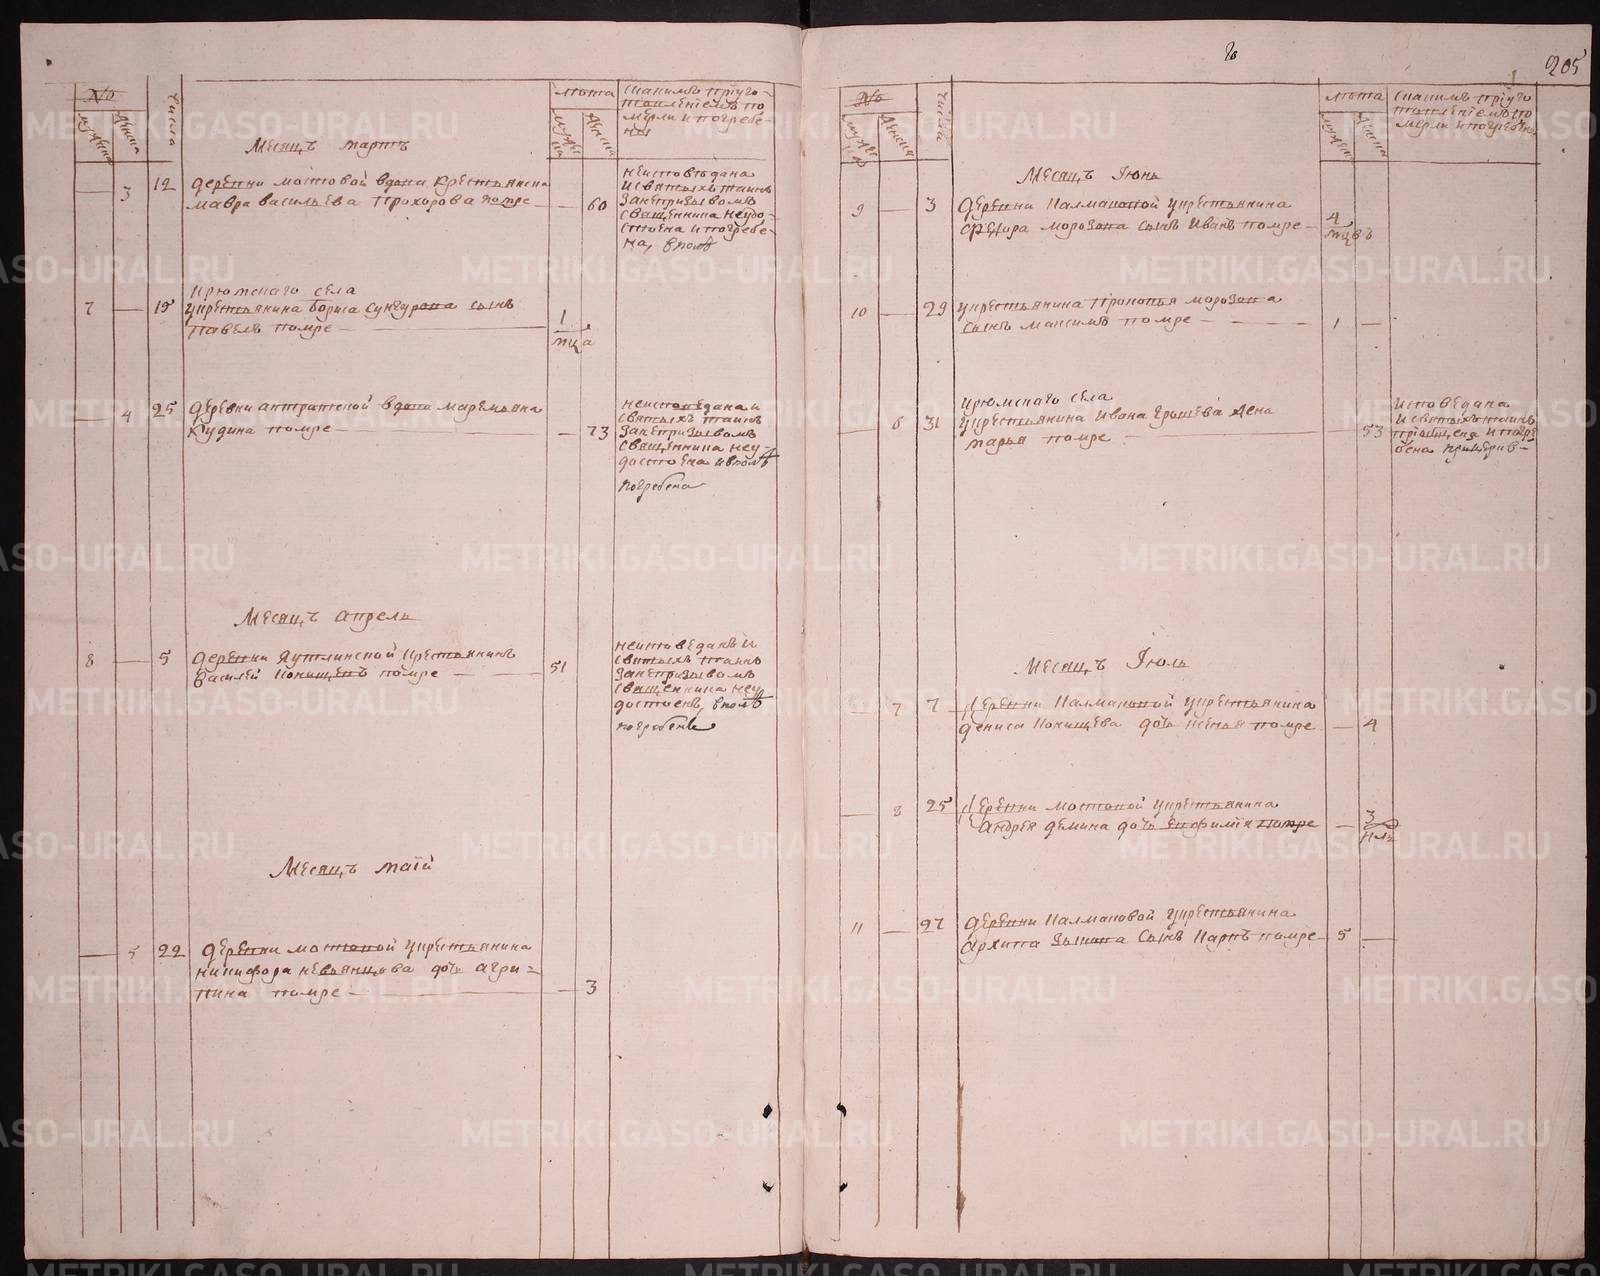 205
№
мужеска
женска
числа
лѣта
мужеска
женска
съ какимъ приуго-
товлениемъ по
мерли и погребе-
ны
Месяцъ мартъ
3 12 деревни мостовой вдова крестьянска
мавра васильева прохорова помре 60
неисповѣдана
и святыхъ таинъ
за непризывомъ
священника неудо-
стоена и погребе-
на, в полѣ
7 15 ирюмскаго села
укрестьянина бориса сунгурова сынъ
павелъ помре 1
мца
4 25 деревни антрапской вдова маремьяна
кудина помре 73
неисповедана и
святыхъ таинъ
за непризывомъ
священника неу-
достоена и в полѣ
погребена
Месяцъ апрель
8 5 деревни яутлинской крестьянинъ
василей кокшенъ помре 51
неисповеданъ и
святыхъ таинъ
за непризывомъ
священника неу
достоенъ, в полѣ
погребенъ
Месяцъ маїй
5 22 деревни мостовой укрестьянина
никифора невьянцова дочь агри-
пина помре 3
№
числа
лѣта
съ какимъ приуго
товлениемъ по
мерли и погребены
Месяцъ Iюнь
9 3 деревни калмаковой укрестьянина
федора морозова сынъ иванъ помре 4
мцвъ
10 29 укрестьянина прокопья морозова
сынъ максимъ помре 1
6 31 ирюмскаго села
укрестьянина ивана ерышева жена
марья помре 53
исповедана
и святыхъ таинъ
приобщена и погре
бена при церкв-
Месяцъ Iюль
7 7 деревни калмаковой укрестьянина
дениса кокшева дочь помре 4
8 25 деревни мостовой укрестьянина
андрея демина дочь енфимия помре 3
нль
11 27 деревни калмаковой укрестьянина
архипа зыкова сынъ карпъ помре 5
METRIKI.GASO-URAL.RU